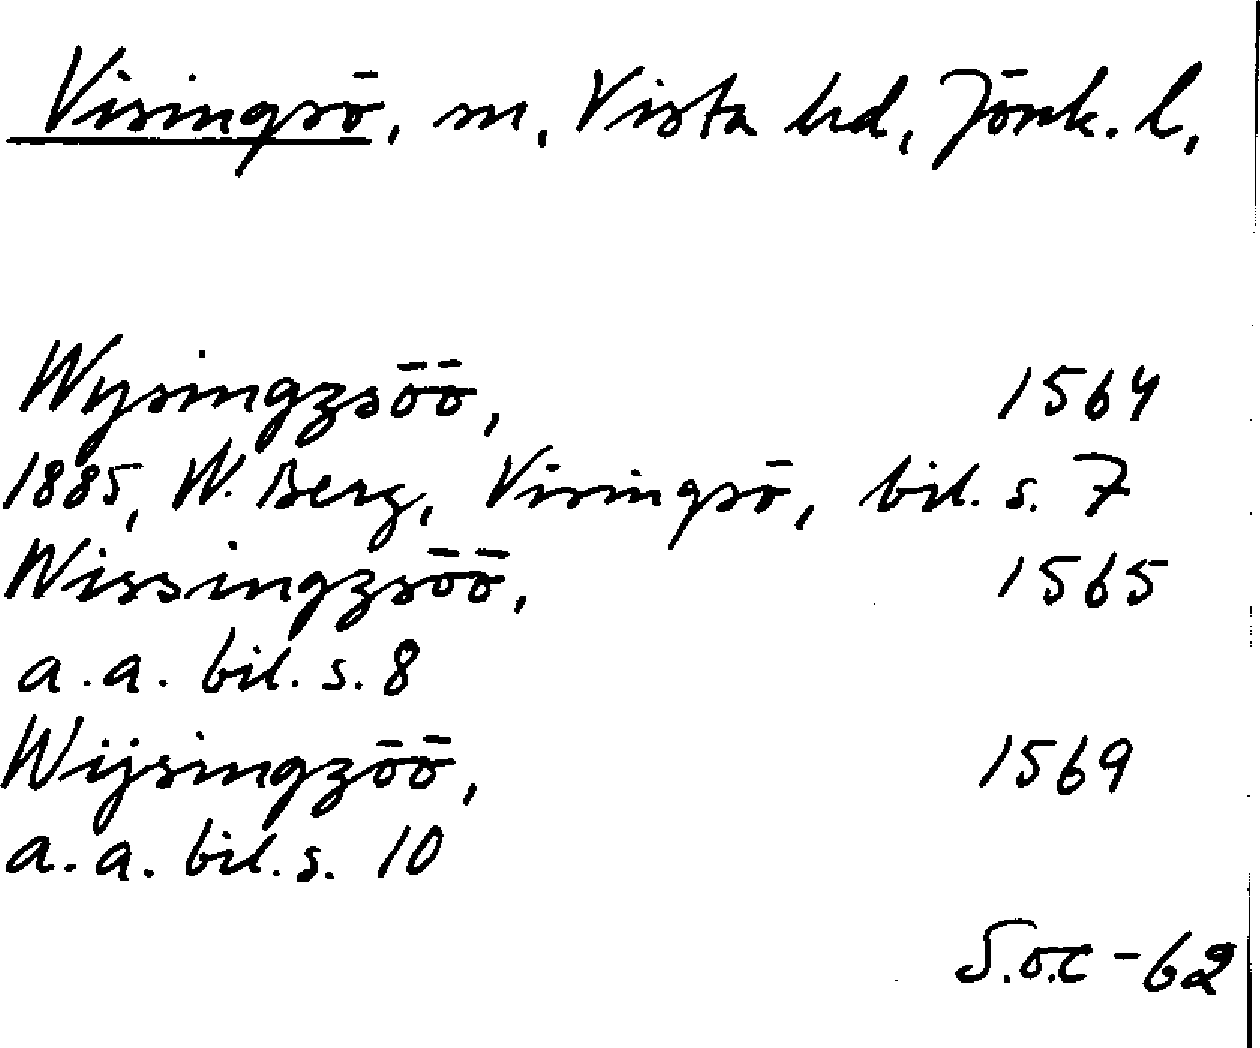 Visingsö, sn, Vista hd, Jönk. l,
Wysingzsöö, 1564
1885, W. Berg, Visingsö, bil. s. 7
Wissingzsöö, 1565
a.a. bil. s. 8
Wijsingzöö, 1569
a.a. bil. s. 10
S.o.c - 62